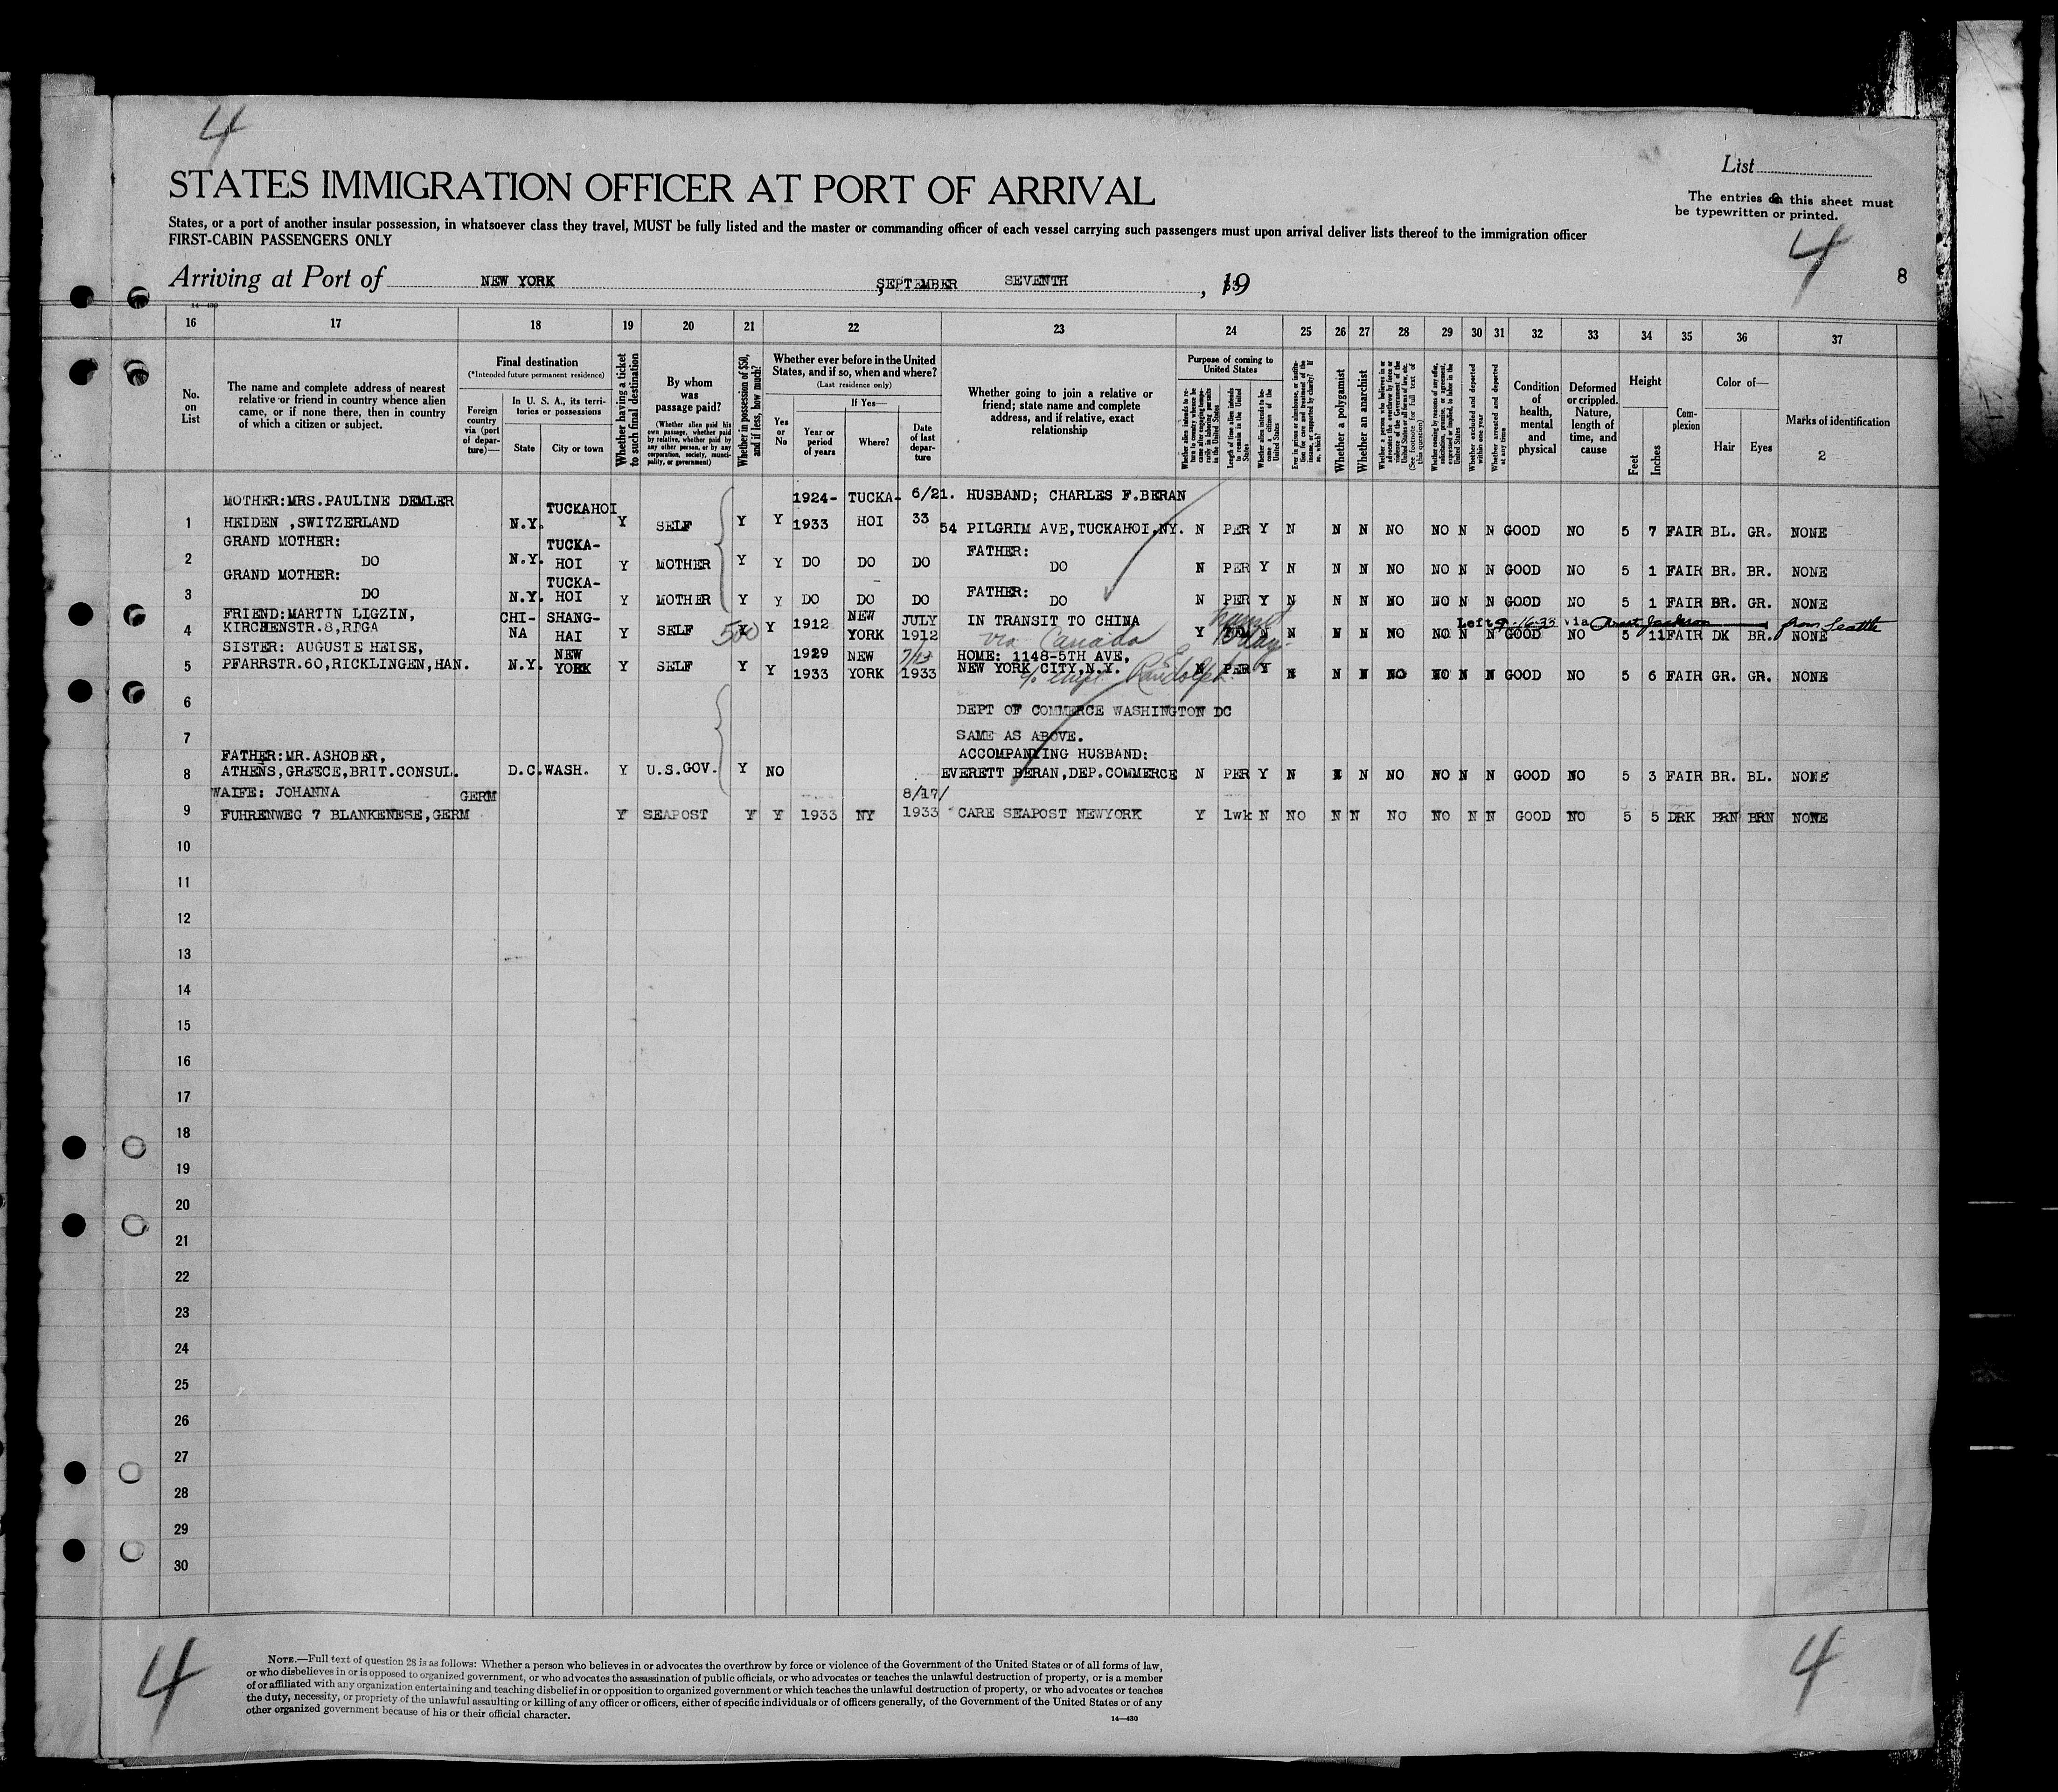 4
STATES IMMIGRATION OFFICER AT PORT OF ARRIVAL
List
The entries on this sheet must
be typewritten or printed.
States, or a port of another insular possession, in whatsoever class they travel, MUST be fully listed and the master or commanding officer of each vessel carrying such passengers must upon arrival deliver lists thereof to the immigration officer
FIRST-CABIN PASSENGERS ONLY
4
8
Arriving at Port of NEW YORK , SEPTEMBER SEVENTH , 19
14—430
16 17 18 19 20 21 22 23 24 25 26 27 28 29 30 31 32 33 34 35 36 37
No. on List
The name and complete address of nearest
relative or friend in country whence alien
came, or if none there, then in country
of which a citizen or subject.
Final destination
(*Intended future permanent residence)
Foreign country via (port of departure)—
In U. S. A., its territories or possessions
State
City or town
Whether having a ticket to such final destination
By whom was passage paid?
(Whether alien paid his own passage, whether paid by relative, whether paid by any other person, or by any corporation, society, municipality, or government)
Whether in possession of $50, and if less, how much?
Whether ever before in the United States, and if so, when and where?
(Last residence only)
Yes or No
If Yes—
Year or period of years
Where?
Date of last departure
Whether going to join a relative or
friend; state name and complete
address, and if relative, exact
relationship
Purpose of coming to United States
Whether alien intends to return to country whence he came after engaging temporarily in laboring pursuits in the United States
Length of time alien intends to remain in the United States
Whether alien intends to become a citizen of the United States
Ever in prison or almshouse, or institution for care and treatment of the insane, or supported by charity? If so, which?
Whether a polygamist
Whether an anarchist
Whether a person who believes in or advocates the overthrow by force or violence of the Government of the United States or all forms of law, etc. (See footnote for full text of this question)
Whether coming by reasons of any offer, solicitation, promise, or agreement, expressed or implied, to labor in the United States
Whether excluded and deported within one year
Whether arrested and deported at any time
Condition of health, mental and physical
Deformed or crippled. Nature, length of time, and cause
Height
Feet
Inches
Complexion
Color of—
Hair
Eyes
Marks of identification
2
MOTHER:MRS.PAULINE DEMLER TUCKAHOI 1924- TUCKA- 6/21. HUSBAND; CHARLES F.BERAN
1 HEIDEN ,SWITZERLAND N.Y. Y SELF Y Y 1933 HOI 33 54 PILGRIM AVE,TUCKAHOI,NY. N PER Y N N N NO NO N N GOOD NO 5 7 FAIR BL. GR. NONE
GRAND MOTHER: TUCKA- FATHER:
2 DO N.Y. HOI Y MOTHER Y Y DO DO DO DO N PER Y N N N NO NO N N GOOD NO 5 1 FAIR BR. BR. NONE
GRAND MOTHER: TUCKA- FATHER:
3 DO N.Y. HOI Y MOTHER Y Y DO DO DO DO N PER Y N N N NO NO N N GOOD NO 5 1 FAIR BR. GR. NONE
FRIEND:MARTIN LIGZIN, CHI- SHANG- NEW JULY IN TRANSIT TO CHINA Left 9-16-33 via from Seattle
4 KIRCHENSTR.8,RIGA NA HAI Y SELF 500 Y 1912 YORK 1912 via Canada Y N N N N NO NO N N GOOD NO 5 11 FAIR DK BR. NONE
SISTER: AUGUSTE HEISE, NEW 1929 NEW HOME: 1148-5TH AVE,
5 PFARRSTR.60,RICKLINGEN,HAN. N.Y. YORK Y SELF Y Y 1933 YORK 1933 NEW YORK CITY,N.Y. N PER Y N N N NO NO N N GOOD NO 5 6 FAIR GR. GR. NONE
c/o Randolph
6 DEPT OF COMMERCE WASHINGTON DC
7 SAME AS ABOVE.
FATHER:MR.ASHOBER, ACCOMPANYING HUSBAND:
8 ATHENS,GREECE,BRIT.CONSUL. D.C. WASH. Y U.S.GOV. Y NO EVERETT BERAN,DEP.COMMERCE N PER Y N N N NO NO N N GOOD NO 5 3 FAIR BR. BL. NONE
WAIFE: JOHANNA GERM 8/17/
9 FUHRENWEG 7 BLANKENESE,GERM Y SEAPOST Y Y 1933 NY 1933 CARE SEAPOST NEWYORK Y 1wk N NO N N NO NO N N GOOD NO 5 5 DRK BRN BRN NONE
10
11
12
13
14
15
16
17
18
19
20
21
22
23
24
25
26
27
28
29
30
4
4
NOTE.—Full text of question 28 is as follows: Whether a person who believes in or advocates the overthrow by force or violence of the Government of the United States or of all forms of law,
or who disbelieves in or is opposed to organized government, or who advocates the assassination of public officials, or who advocates or teaches the unlawful destruction of property, or is a member
of or affiliated with any organization entertaining and teaching disbelief in or opposition to organized government or which teaches the unlawful destruction of property, or who advocates or teaches
the duty, necessity, or propriety of the unlawful assaulting or killing of any officer or officers, either of specific individuals or of officers generally, of the Government of the United States or of any
other organized government because of his or their official character.
14—430